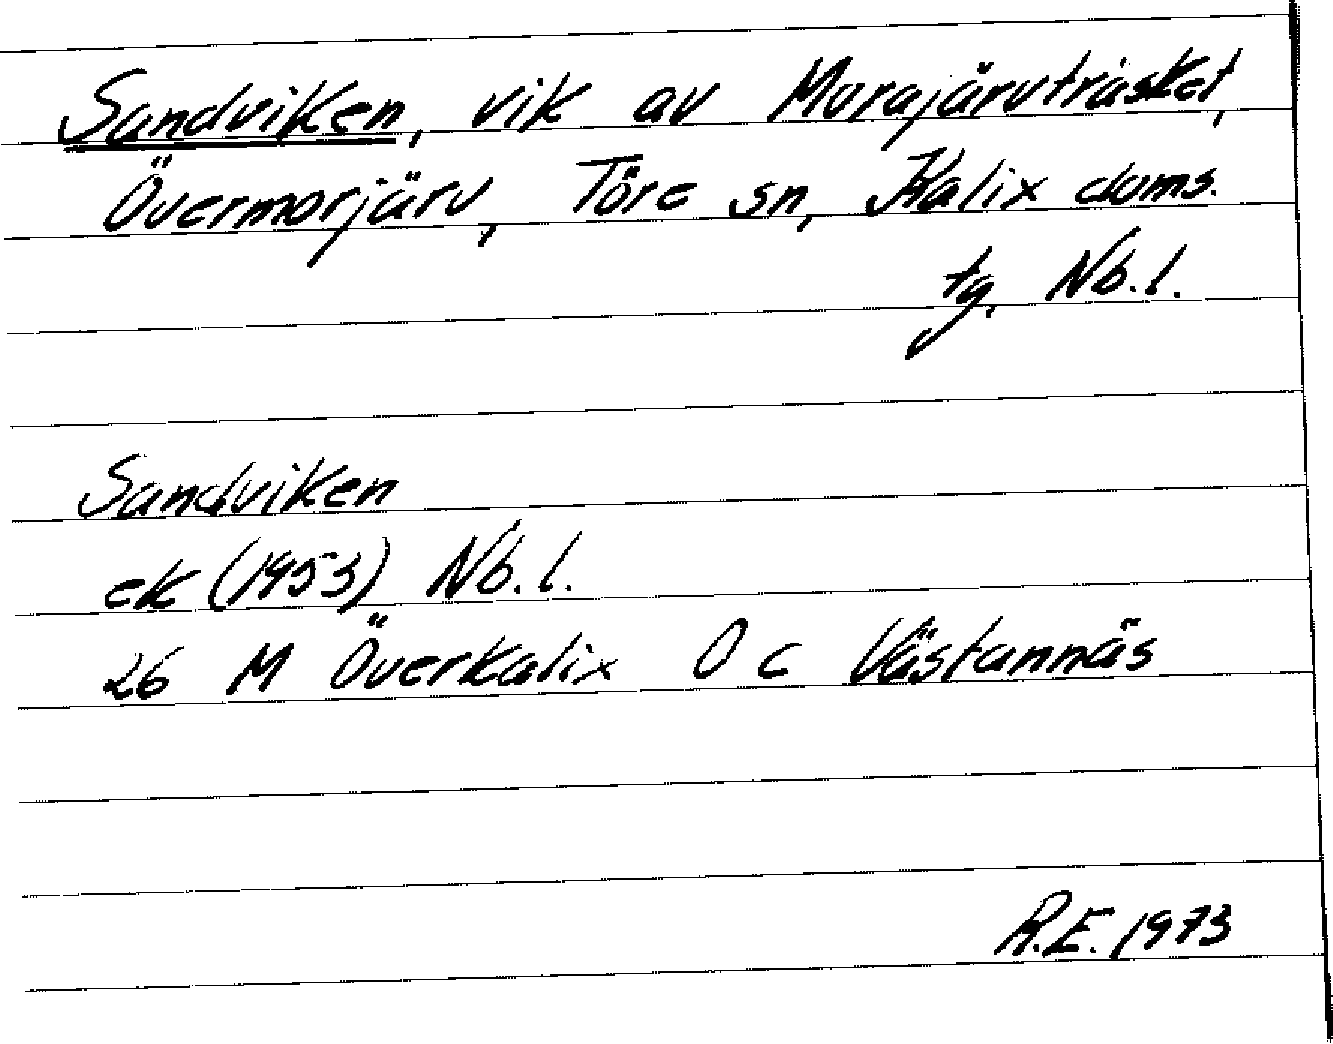 Sandviken, vik av Morajärvträsket,
Övermorjärv, Töre sn, Kalix doms.
tg, Nb.l.
Sandviken
ek (1953) Nb.l.
26 M Överkalix O c Västannäs
R.E. 1973